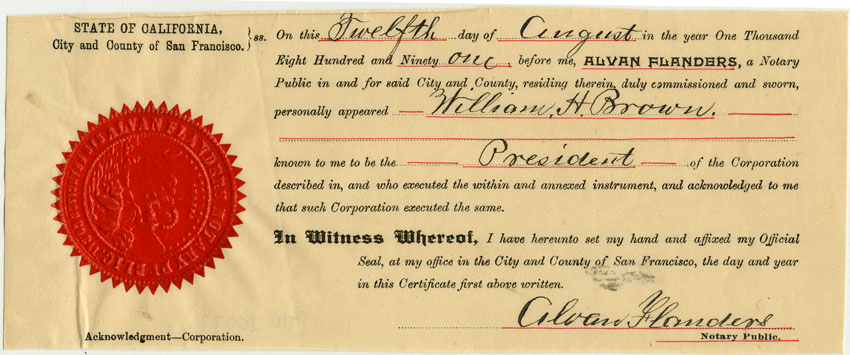 STATE OF CALIFORNIA,
City and County of San Francisco. } ss.
On this Twelfth day of August in the year One Thousand
Eight Hundred and Ninety one, before me, ALVAN FLANDERS, a Notary
Public in and for said City and County, residing therein, duly commissioned and sworn,
personally appeared William H. Brown.
known to me to be the President of the Corporation
described in, and who executed the within and annexed instrument, and acknowledged to me
that such Corporation executed the same.
In Witness Whereof, I have hereunto set my hand and affixed my Official
Seal, at my office in the City and County of San Francisco, the day and year
in this Certificate first above written.
Alvan Flanders
Notary Public.
Acknowledgment—Corporation.
ALVAN FLANDERS NOTARY PUBLIC